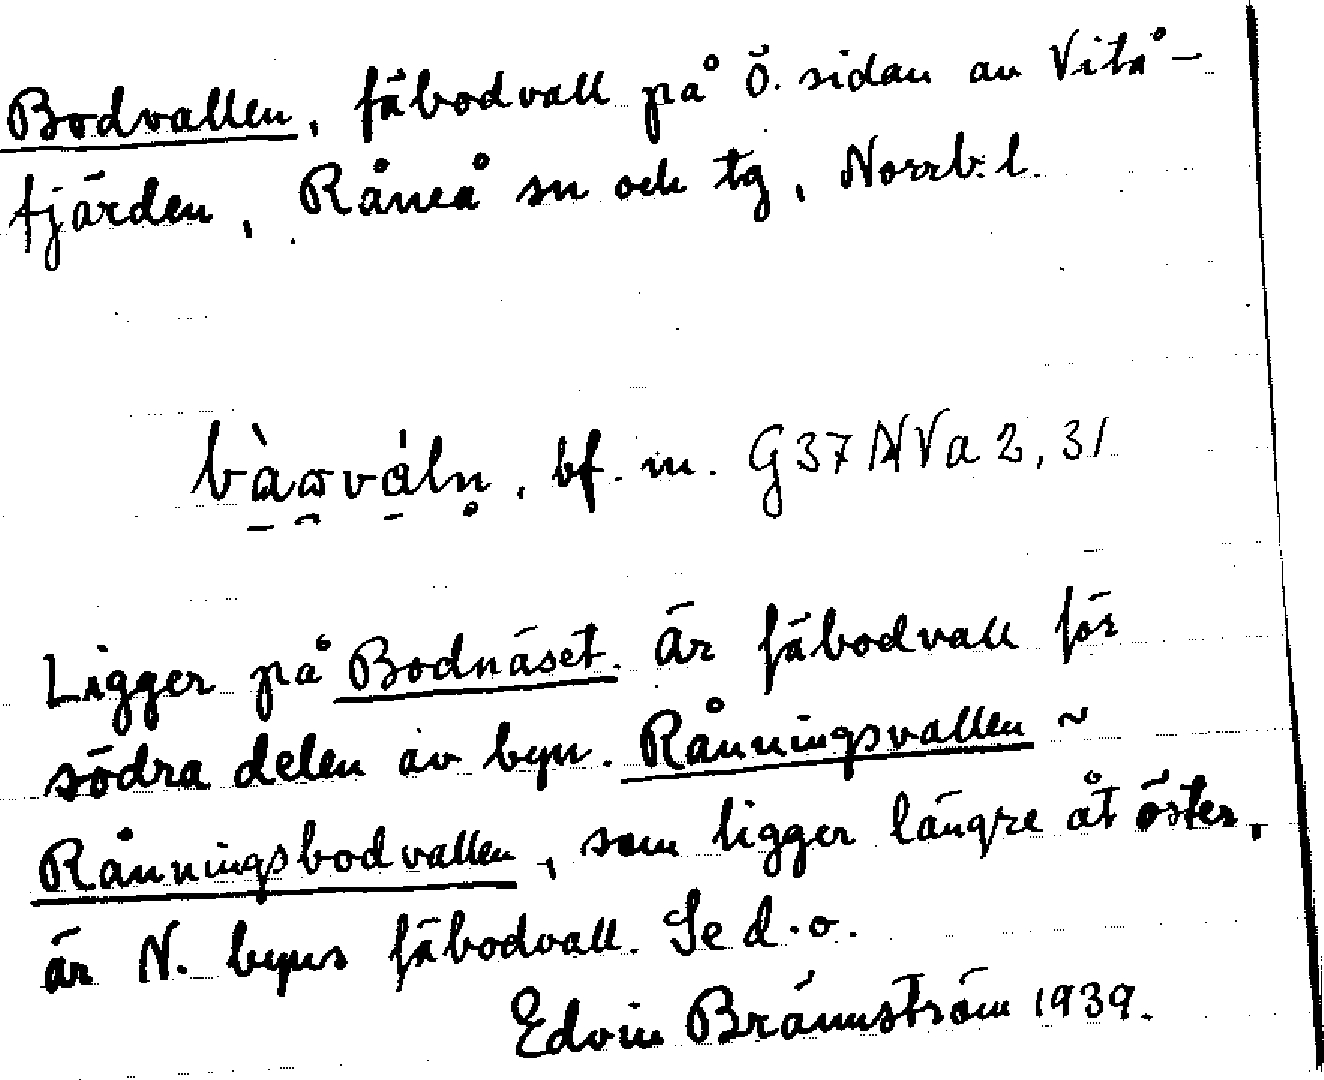 Bodvallen, fäbodvall på ö. sidan av Vitå-
fjärden, Råneå sn och tg, Norrb. l.
bf. m. G37 NV a 2, 31
Ligger på Bodnäset. Är fäbodvall för
södra delen av byn. Rånningsvallen ~
Rånningsbodvallen, som ligger längre åt öster,
är N. byns fäbodvall. Se d. o.
Edvin Brännström 1939.